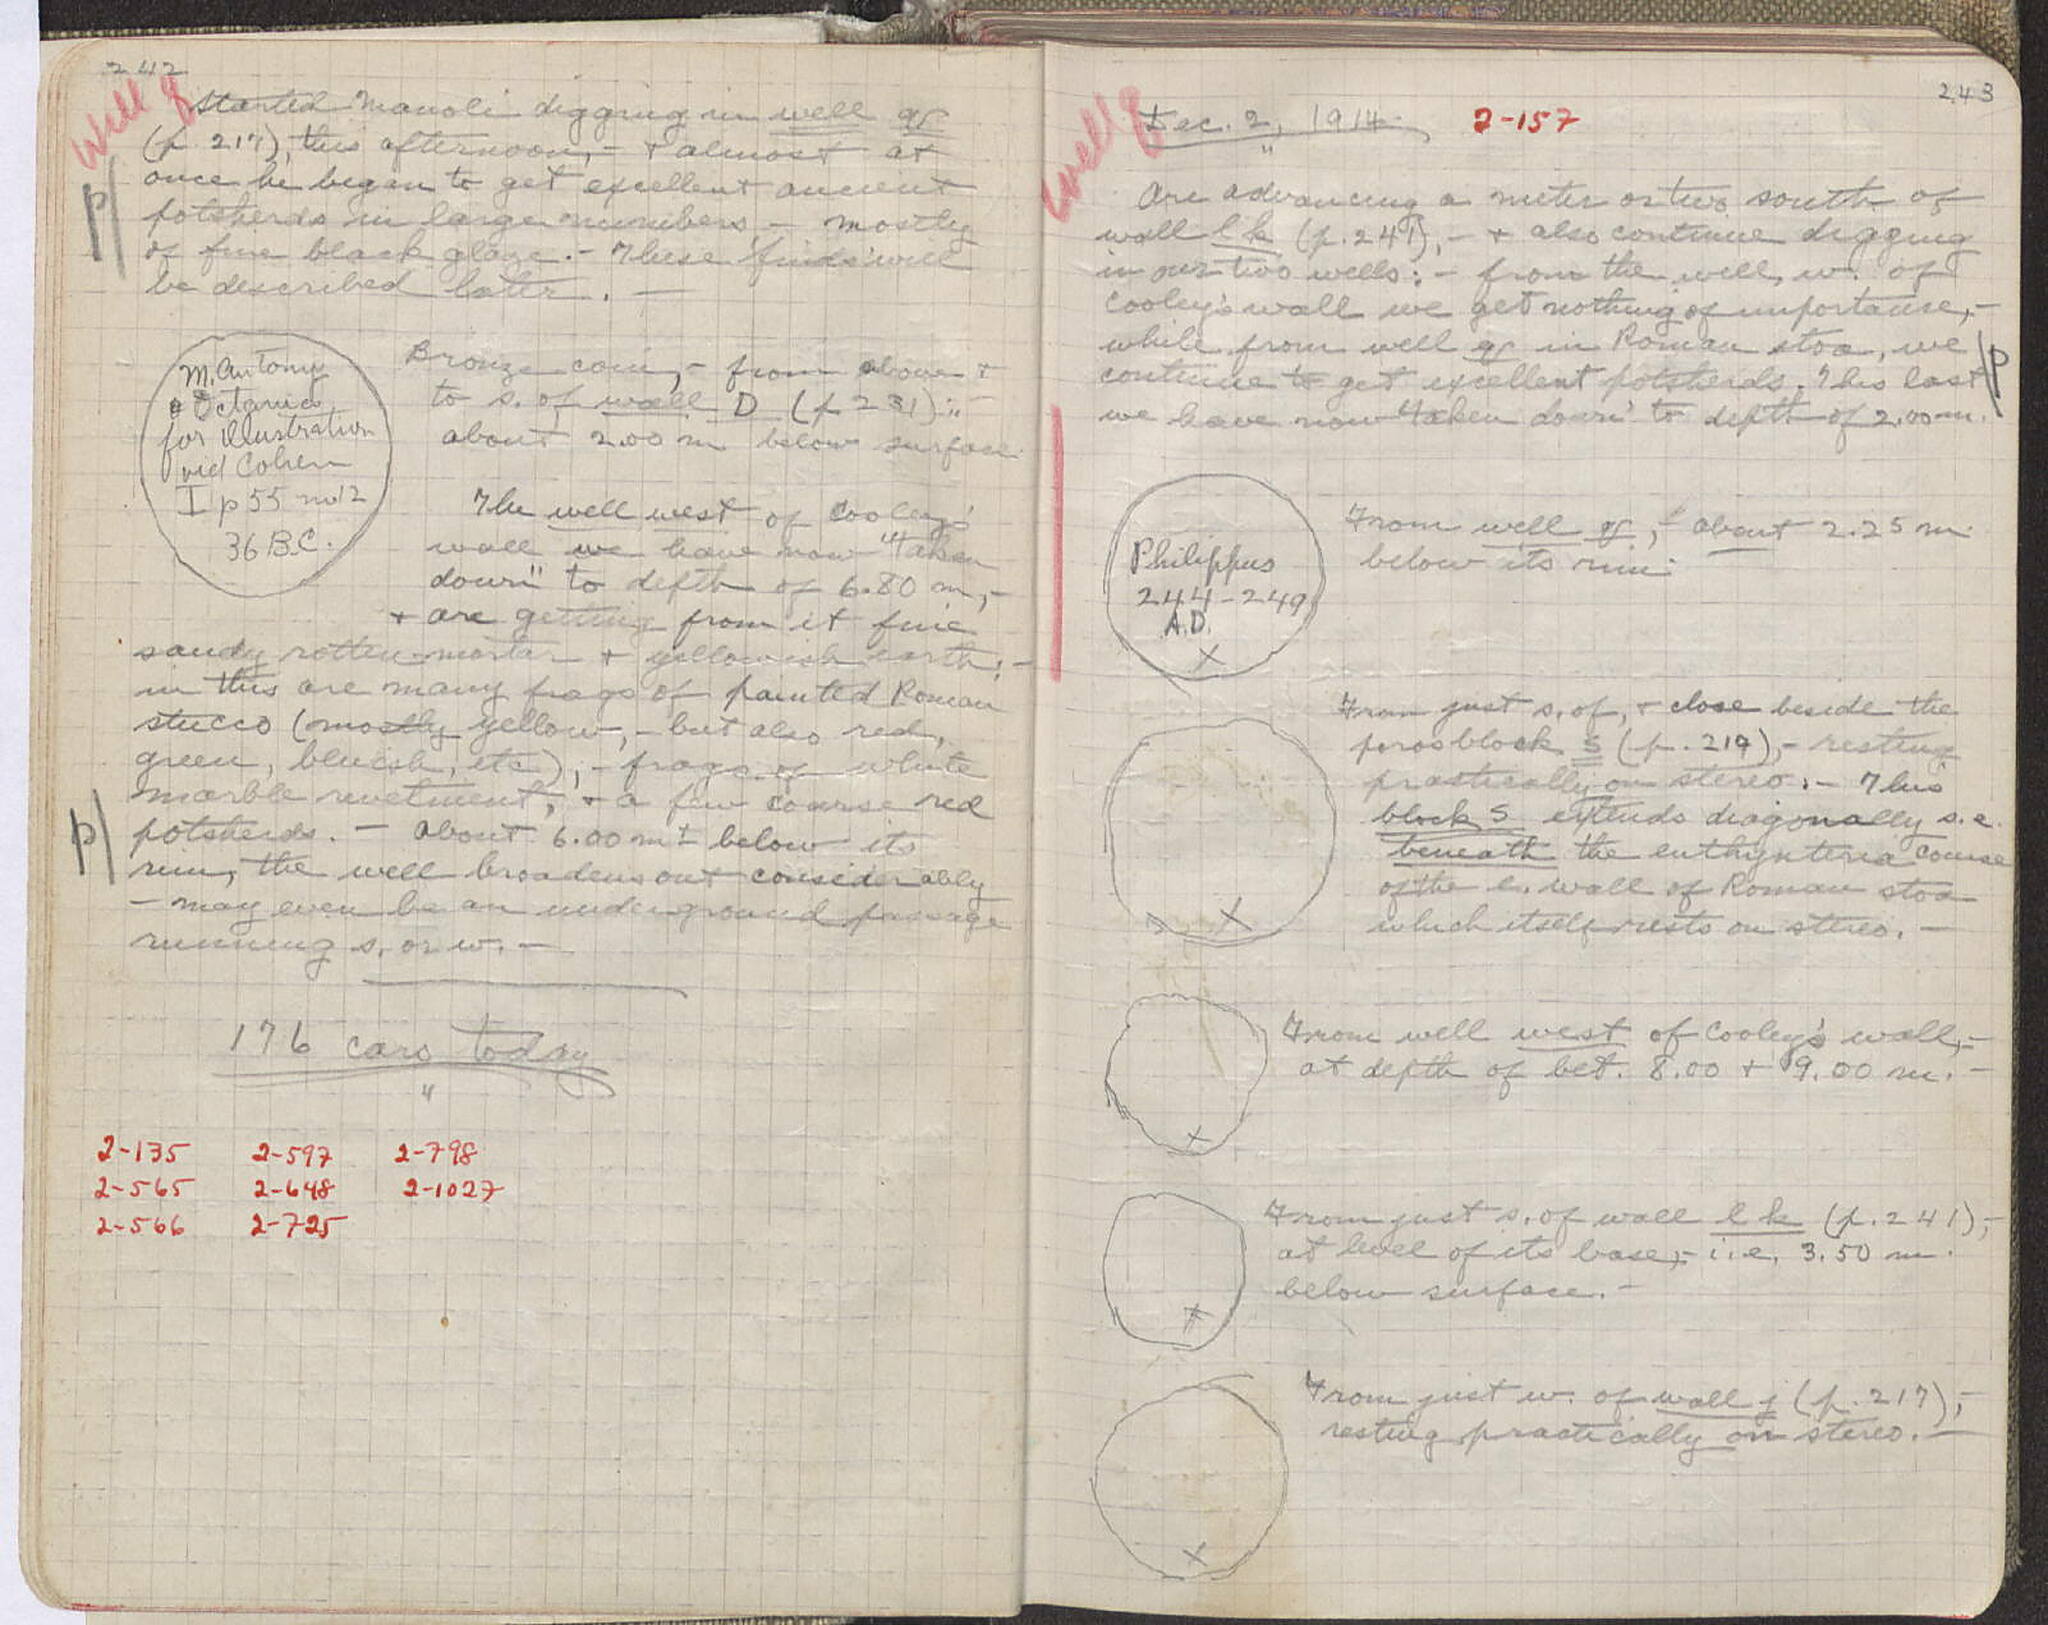 242
Well q
Started Manoli digging in well q
(p. 217), this afternoon, - + almost at
once he began to get excellent ancient
potsherds in large numbers - mostly
of fine black glaze. - These 'finds' will
be described later. -
p
M. Antony
& Octavia
for illustration
vid Cohen
I p 55 no 12
36 B.C.
Bronze coin, - from above +
to s. of wall D (p 231); -
about 2.00 m below surface.
The well west of Cooley's
wall we have now "taken
down" to depth of 6.80 m, -
+ are getting from it fine
sandy rotten mortar + yellowish earth; -
in this are many frags of painted Roman
stucco (mostly yellow, - but also red,
green, bluish, etc), - frags. of white
marble revetment, + a few coarse red
potsherds. - About 6.00 m ± below its
rim, the well broadens out considerably
- may even be an underground passage
running s. or w. -
p
176 cars today
"
2-135 2-597 2-798
2-565 2-648 2-1027
2-566 2-725
243
Well q
Dec. 2, 1914. 2-157
"
Are advancing a meter or two south of
wall lk (p. 241), - + also continue digging
in our two wells: - from the well w. of
Cooley's wall we get nothing of importance, -
while from well q in Roman stoa, we
continue to get excellent potsherds. This last
we have now "taken down" to depth of 2.00 m.
p
Philippus
244-249
A.D.
X
From well q, - about 2.25 m
below its rim.
From just s. of, + close beside the
poros block S (p. 219), - resting
practically on stereo: - This
block S extends diagonally s.e.
beneath the euthynteria course
of the e. wall of Roman stoa
which itself rests on stereo. -
X
From well west of Cooley's wall, -
at depth of bet. 8.00 + 9.00 m. -
X
From just s. of wall lk (p. 241), -
at level of its base, - i.e. 3.50 m.
below surface. -
X
From just w. of wall j (p. 217), -
resting practically on stereo. -
X